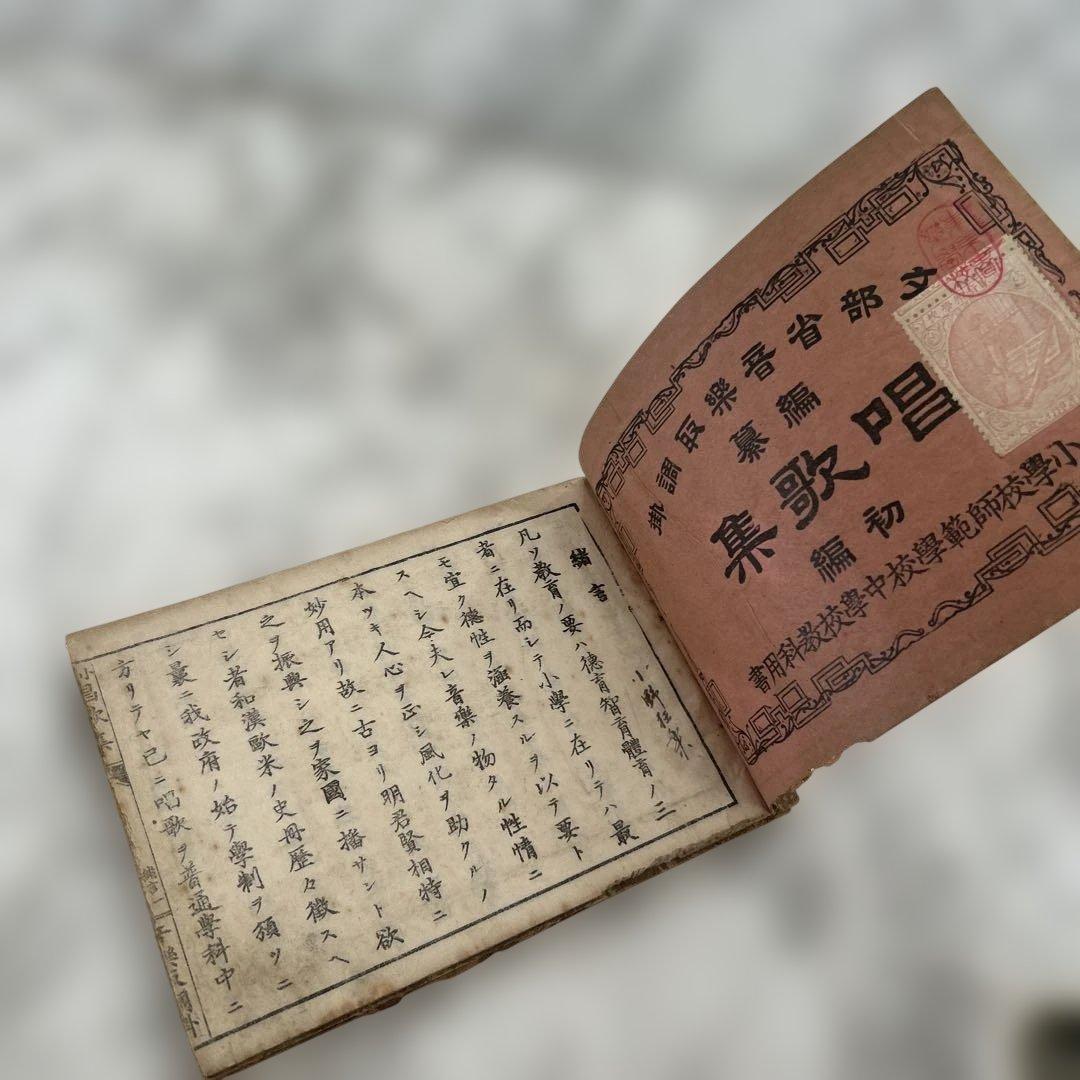 文部省音樂取調掛
編纂
唱歌集
初編
小學校師範學校中學校教科用書
緒言
凡ソ教育ノ要ハ德育智育體育ノ三
者ニ在リ而シテ小學ニ在リテハ最
モ宜ク德性ヲ涵養スルヲ以テ要ト
スヘシ今夫レ音樂ノ物タル性情ニ
本ツキ人心ヲ正シ風化ヲ助クルノ
妙用アリ故ニ古ヨリ明君賢相特ニ
之ヲ振興シ之ヲ家國ニ播サント欲
セシ者和漢歐米ノ史冊歷々徵スヘ
シ曩ニ我政府ノ始テ學制ヲ頒ツニ
方リテヤ已ニ唱歌ヲ普通學科中ニ
緒言一